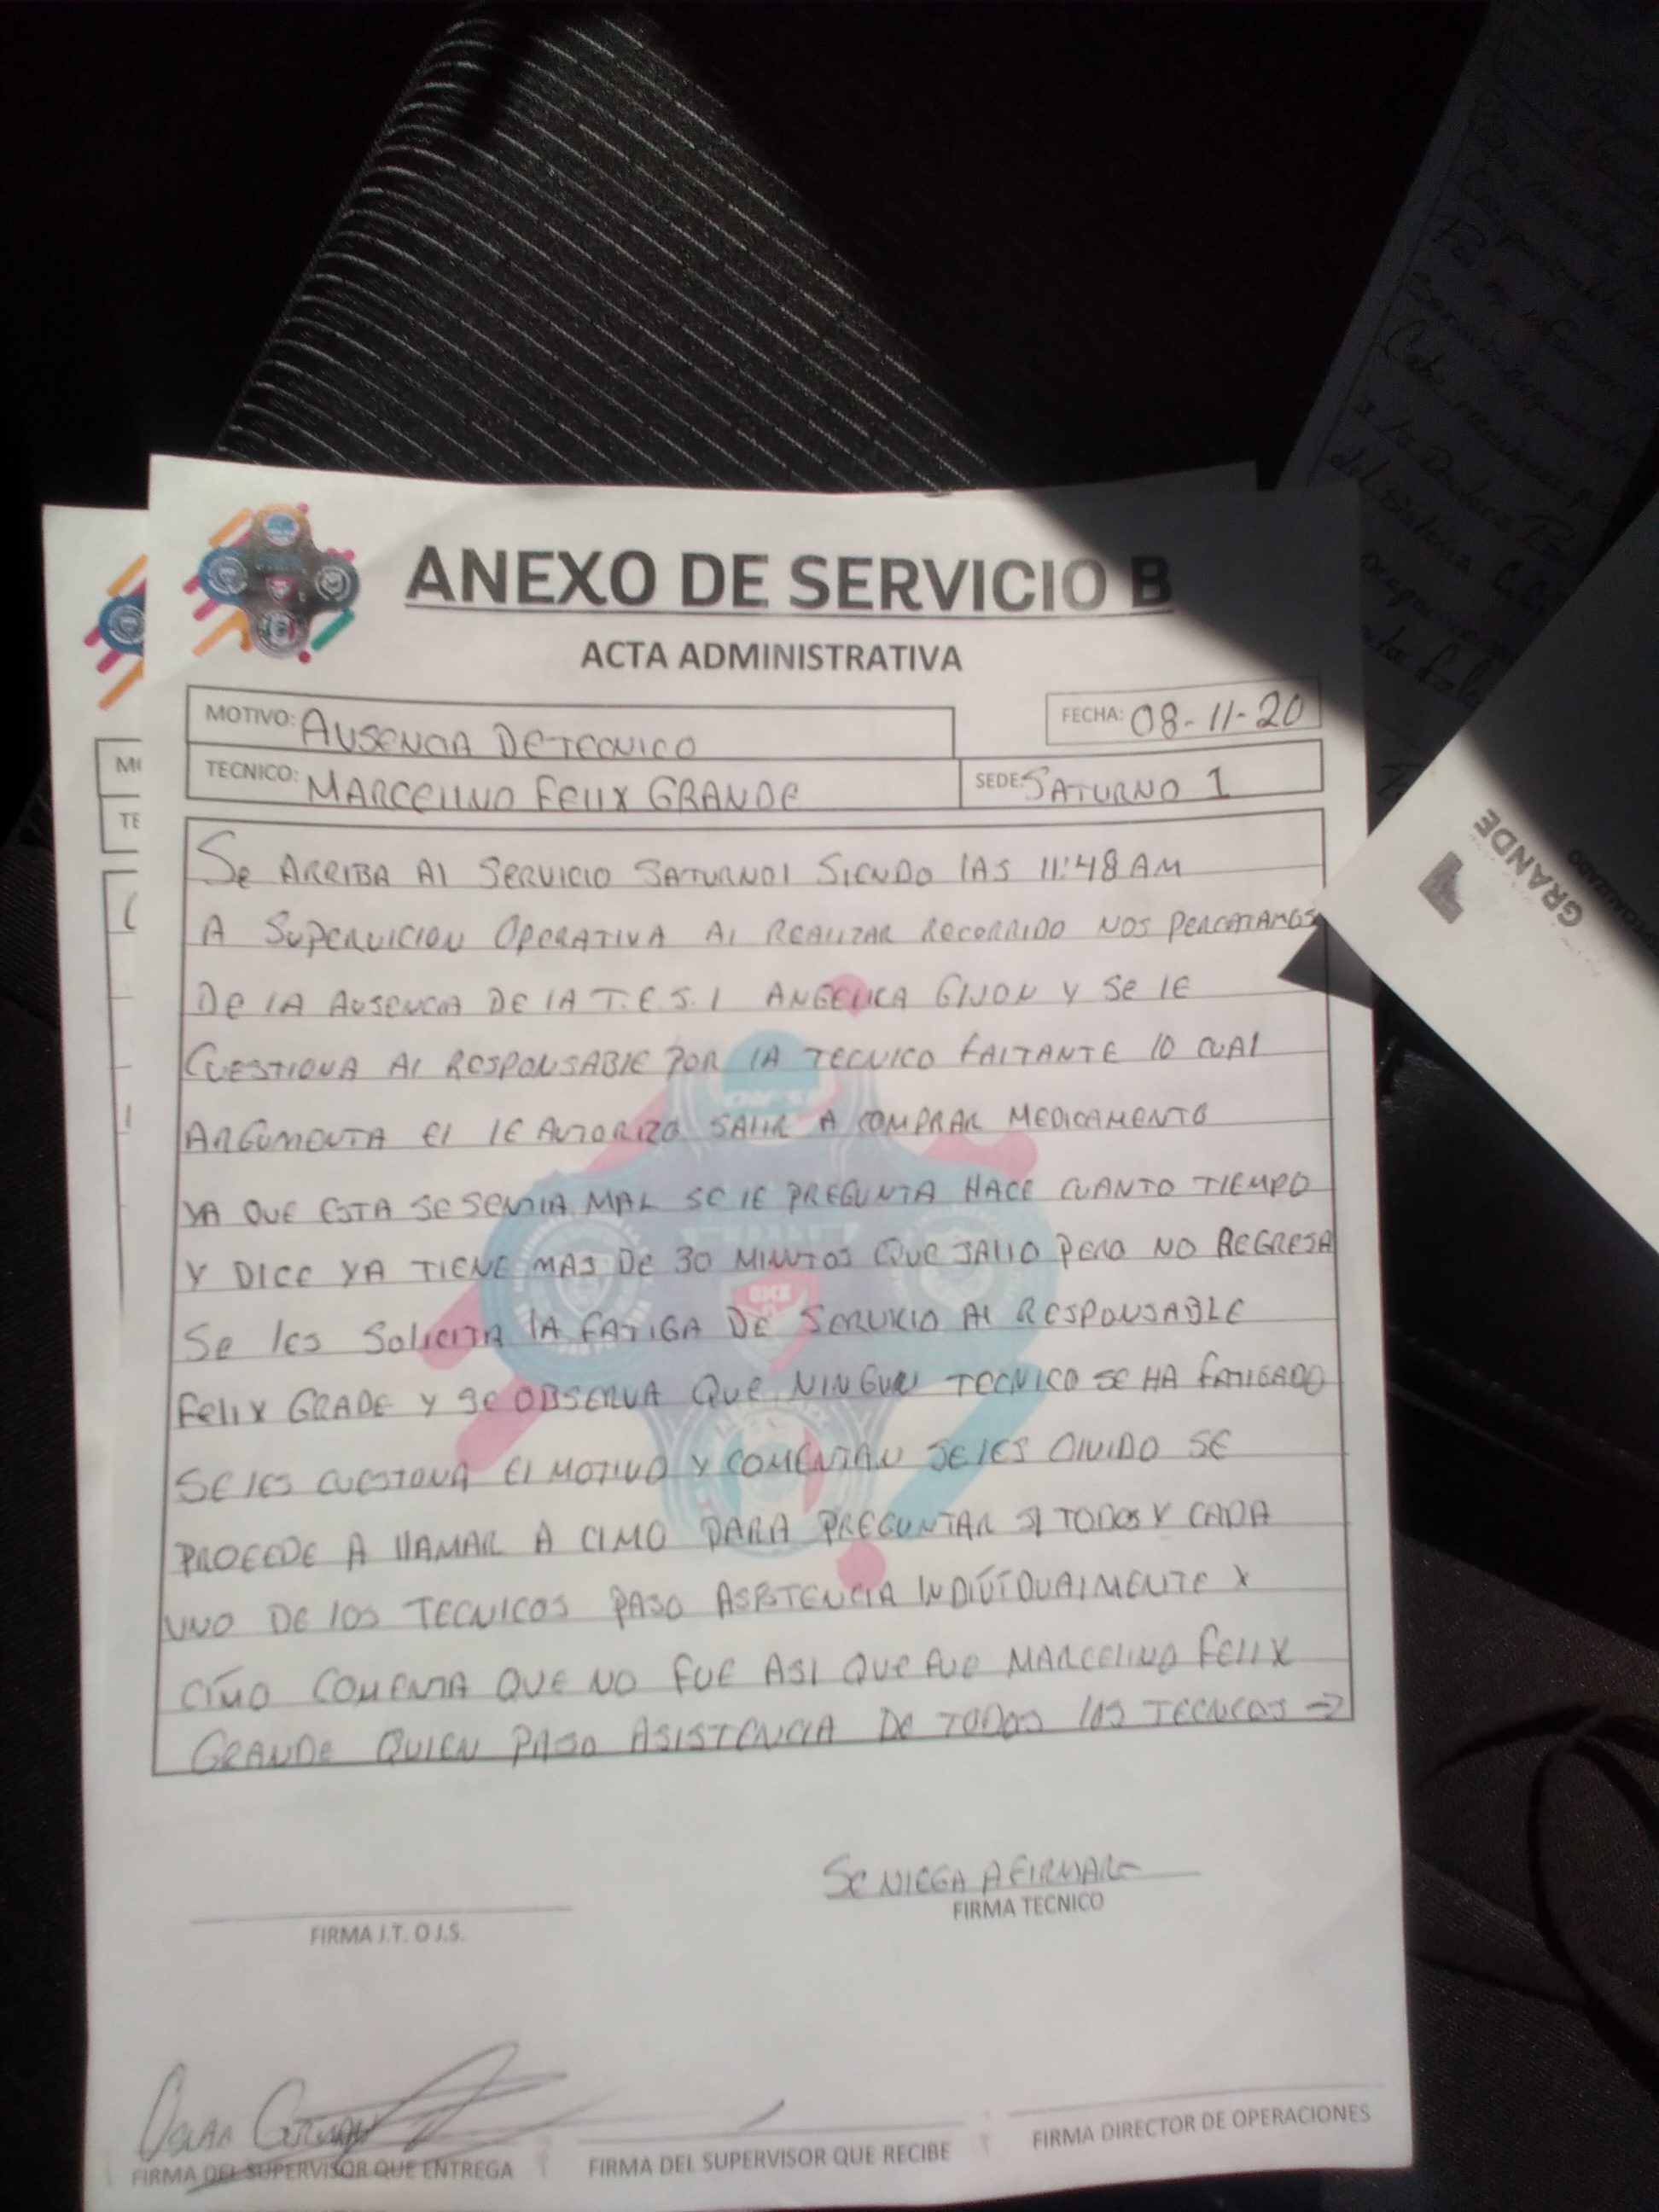 ANEXO DE SERVICIO B
ACTA ADMINISTRATIVA
MOTIVO: AUSENCIA DE TECNICO
FECHA: 08-11-20
TECNICO: MARCELINO FELIX GRANDE
SEDE: SATURNO 1
SE ARRIBA AL SERVICIO SATURNO1 SIENDO LAS 11:48 AM
A SUPERVICION OPERATIVA AL REALIZAR RECORRIDO NOS PERCATAMOS
DE LA AUSENCIA DE LA T.E.S.I ANGELICA GIJON Y SE LE
CUESTIONA AL RESPONSABLE POR LA TECNICO FALTANTE LO CUAL
ARGUMENTA EL LE AUTORIZO SALIR A COMPRAR MEDICAMENTO
YA QUE ESTA SE SENTIA MAL SE LE PREGUNTA HACE CUANTO TIEMPO
Y DICE YA TIENE MAS DE 30 MINUTOS QUE SALIO PERO NO REGRESA
SE LES SOLICITA LA FATIGA DE SERVICIO AL RESPONSABLE
FELIX GRADE Y SE OBSERVA QUE NINGUN TECNICO SE HA FATIGADO
SE LES CUESTIONA EL MOTIVO Y COMENTAN SE LES OLVIDO SE
PROCEDE A LLAMAR A CIMO PARA PREGUNTAR SI TODOS Y CADA
UNO DE LOS TECNICOS PASO ASISTENCIA INDIVIDUALMENTE X
CIMO COMENTA QUE NO FUE ASI QUE FUE MARCELINO FELIX
GRANDE QUIEN PASO ASISTENCIA DE TODOS LOS TECNICOS →
SE NIEGA A FIRMAR
FIRMA J.T. O J.S.
FIRMA TECNICO
FIRMA DEL SUPERVISOR QUE ENTREGA
FIRMA DEL SUPERVISOR QUE RECIBE
FIRMA DIRECTOR DE OPERACIONES
GRANDE